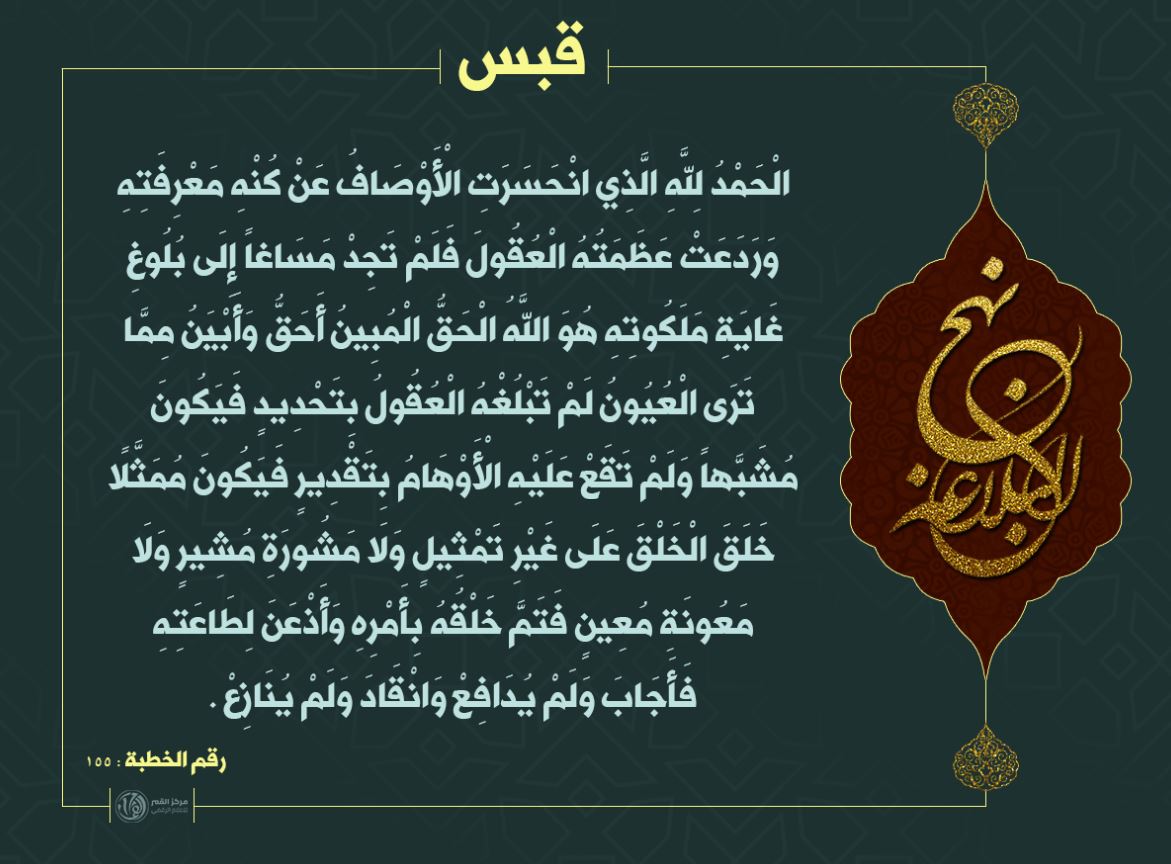 قبس
نهج البلاغة
الْحَمْدُ لِلَّهِ الَّذِي انْحَسَرَتِ الْأَوْصَافُ عَنْ كُنْهِ مَعْرِفَتِهِ
وَرَدَعَتْ عَظَمَتُهُ الْعُقُولَ فَلَمْ تَجِدْ مَسَاغاً إِلَى بُلُوغِ
غَايَةِ مَلَكُوتِهِ هُوَ اللَّهُ الْحَقُّ الْمُبِينُ أَحَقُّ وَأَبْيَنُ مِمَّا
تَرَى الْعُيُونُ لَمْ تَبْلُغْهُ الْعُقُولُ بِتَحْدِيدٍ فَيَكُونَ
مُشَبَّهاً وَلَمْ تَقَعْ عَلَيْهِ الْأَوْهَامُ بِتَقْدِيرٍ فَيَكُونَ مُمَثَّلًا
خَلَقَ الْخَلْقَ عَلَى غَيْرِ تَمْثِيلٍ وَلَا مَشُورَةِ مُشِيرٍ وَلَا
مَعُونَةِ مُعِينٍ فَتَمَّ خَلْقُهُ بِأَمْرِهِ وَأَذْعَنَ لِطَاعَتِهِ
فَأَجَابَ وَلَمْ يُدَافِعْ وَانْقَادَ وَلَمْ يُنَازِعْ .
رقم الخطبة : ١٥٥
مركز القمر
للاعلام الرقمي